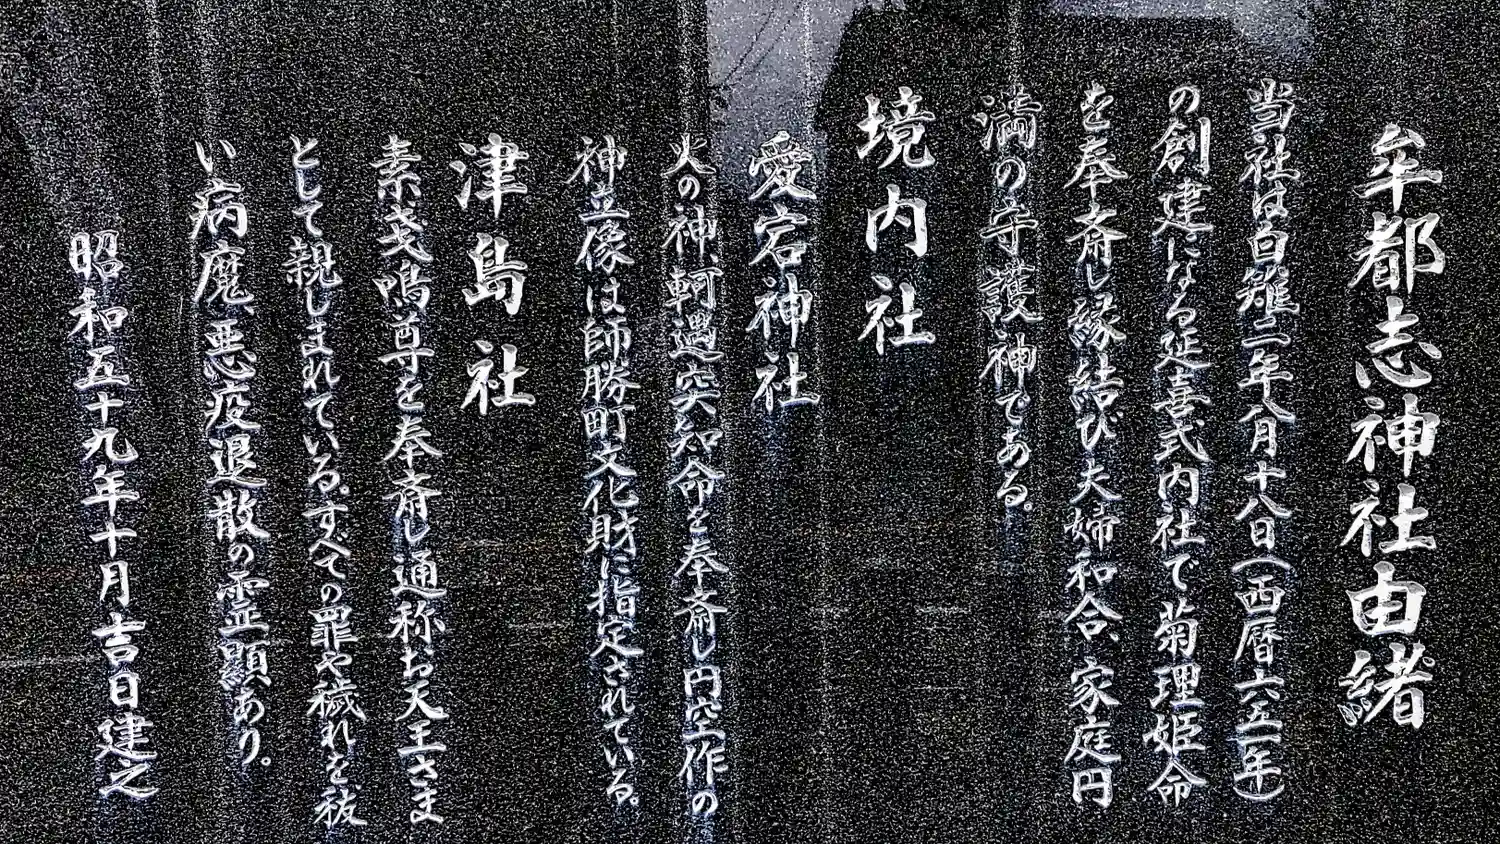 牟都志神社由緒
当社は白雉二年八月十八日(西暦六五一年)
の創建になる延喜式内社で菊理姫命
を奉斎し縁結び夫婦和合、家庭円
満の守護神である。
境内社
愛宕神社
火の神、軻遇突知命を奉斎し円空作の
神立像は師勝町文化財に指定されている。
津島社
素戔鳴尊を奉斎し通称お天王さま
として親しまれている。すべての罪や穢れを祓
い病魔、悪疫退散の霊顕あり。
昭和五十九年十月吉日建之